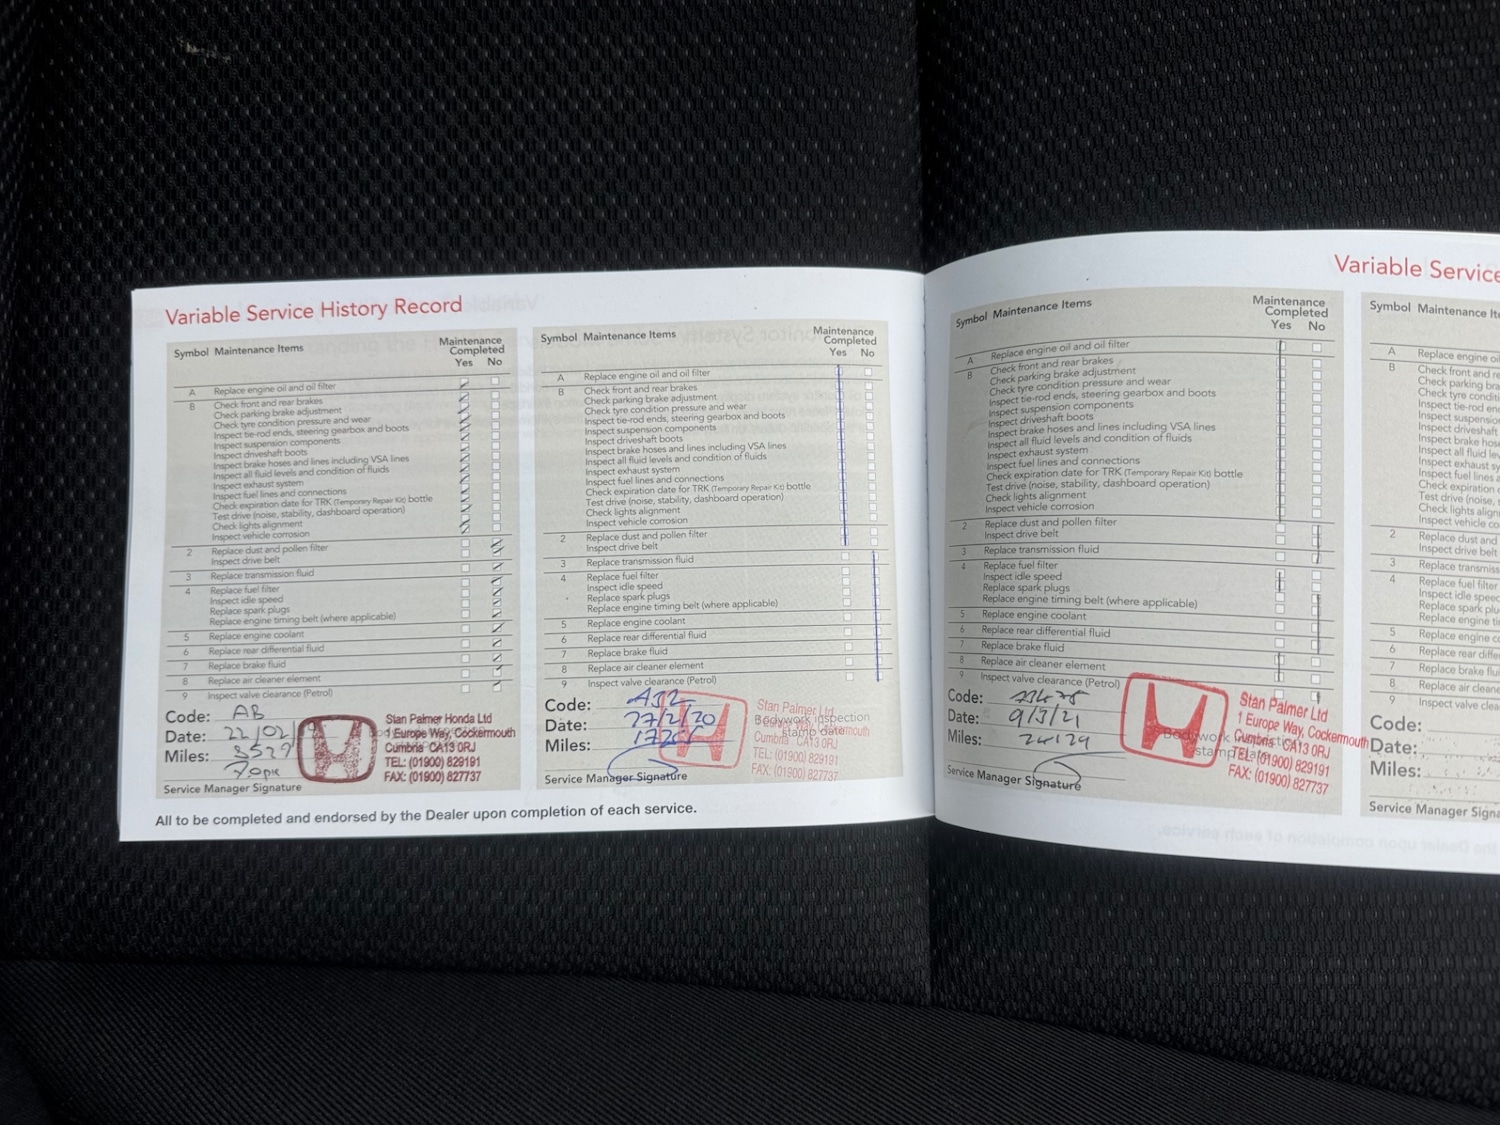 Variable Service History Record
Symbol Maintenance Items
Maintenance
Completed
Yes No
A Replace engine oil and oil filter
B Check front and rear brakes
Check parking brake adjustment
Check tyre condition pressure and wear
Inspect tie-rod ends, steering gearbox and boots
Inspect suspension components
Inspect driveshaft boots
Inspect brake hoses and lines including VSA lines
Inspect all fluid levels and condition of fluids
Inspect exhaust system
Inspect fuel lines and connections
Check expiration date for TRK (Temporary Repair Kit) bottle
Test drive (noise, stability, dashboard operation)
Check lights alignment
Inspect vehicle corrosion
2 Replace dust and pollen filter
Inspect drive belt
3 Replace transmission fluid
4 Replace fuel filter
Inspect idle speed
Replace spark plugs
Replace engine timing belt (where applicable)
5 Replace engine coolant
6 Replace rear differential fluid
7 Replace brake fluid
8 Replace air cleaner element
9 Inspect valve clearance (Petrol)
Code: AB
Date: 22/02/
Miles: 3529
Service Manager Signature
Stan Palmer Honda Ltd
1 Europe Way, Cockermouth
Cumbria CA13 0RJ
TEL: (01900) 829191
FAX: (01900) 827737
All to be completed and endorsed by the Dealer upon completion of each service.
Symbol Maintenance Items
Maintenance
Completed
Yes No
A Replace engine oil and oil filter
B Check front and rear brakes
Check parking brake adjustment
Check tyre condition pressure and wear
Inspect tie-rod ends, steering gearbox and boots
Inspect suspension components
Inspect driveshaft boots
Inspect brake hoses and lines including VSA lines
Inspect all fluid levels and condition of fluids
Inspect exhaust system
Inspect fuel lines and connections
Check expiration date for TRK (Temporary Repair Kit) bottle
Test drive (noise, stability, dashboard operation)
Check lights alignment
Inspect vehicle corrosion
2 Replace dust and pollen filter
Inspect drive belt
3 Replace transmission fluid
4 Replace fuel filter
Inspect idle speed
Replace spark plugs
Replace engine timing belt (where applicable)
5 Replace engine coolant
6 Replace rear differential fluid
7 Replace brake fluid
8 Replace air cleaner element
9 Inspect valve clearance (Petrol)
Code:
Date: 27/2/20
Miles:
Service Manager Signature
Bodywork inspection
stamp date
Stan Palmer Ltd
Cumbria CA13 0RJ
TEL: (01900) 829191
FAX: (01900) 827737
Variable Service
Symbol Maintenance Items
Maintenance
Completed
Yes No
A Replace engine oil and oil filter
B Check front and rear brakes
Check parking brake adjustment
Check tyre condition pressure and wear
Inspect tie-rod ends, steering gearbox and boots
Inspect suspension components
Inspect driveshaft boots
Inspect brake hoses and lines including VSA lines
Inspect all fluid levels and condition of fluids
Inspect exhaust system
Inspect fuel lines and connections
Check expiration date for TRK (Temporary Repair Kit) bottle
Test drive (noise, stability, dashboard operation)
Check lights alignment
Inspect vehicle corrosion
2 Replace dust and pollen filter
Inspect drive belt
3 Replace transmission fluid
4 Replace fuel filter
Inspect idle speed
Replace spark plugs
Replace engine timing belt (where applicable)
5 Replace engine coolant
6 Replace rear differential fluid
7 Replace brake fluid
8 Replace air cleaner element
9 Inspect valve clearance (Petrol)
Code:
Date: 9/3/21
Miles: 24129
Service Manager Signature
Stan Palmer Ltd
1 Europe Way, Cockermouth
Cumbria CA13 0RJ
TEL: (01900) 829191
FAX: (01900) 827737
Symbol Maintenance Ite
A Replace engine oi
B Check front and re
Check parking bra
Check tyre conditi
Inspect tie-rod en
Inspect suspensio
Inspect driveshaft
Inspect brake hos
Inspect all fluid le
Inspect exhaust sy
Inspect fuel lines a
Check expiration
Test drive (noise,
Check lights align
Inspect vehicle co
2 Replace dust and
Inspect drive belt
3 Replace transmiss
4 Replace fuel filter
Inspect idle speed
Replace spark plu
Replace engine ti
5 Replace engine c
6 Replace rear diffe
7 Replace brake flu
8 Replace air cleane
9 Inspect valve clea
Code:
Date:
Miles:
Service Manager Signa